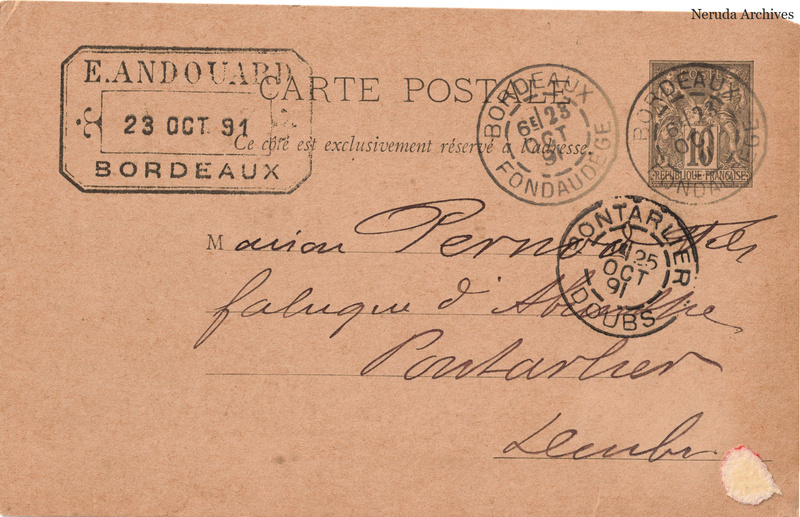 Neruda Archives
E. ANDOUARD
23 OCT 91
BORDEAUX
CARTE POSTALE
Ce côté est exclusivement réservé à l'adresse.
BORDEAUX
6E 23
OCT
91
FONDAUDÈGE
BORDEAUX
6E 23
OCT
FONDAUDÈGE
10
REPUBLIQUE FRANÇAISE
PONTARLIER
25
OCT
91
DOUBS
Maison Pernod Fils
fabrique d'Absinthe
Pontarlier